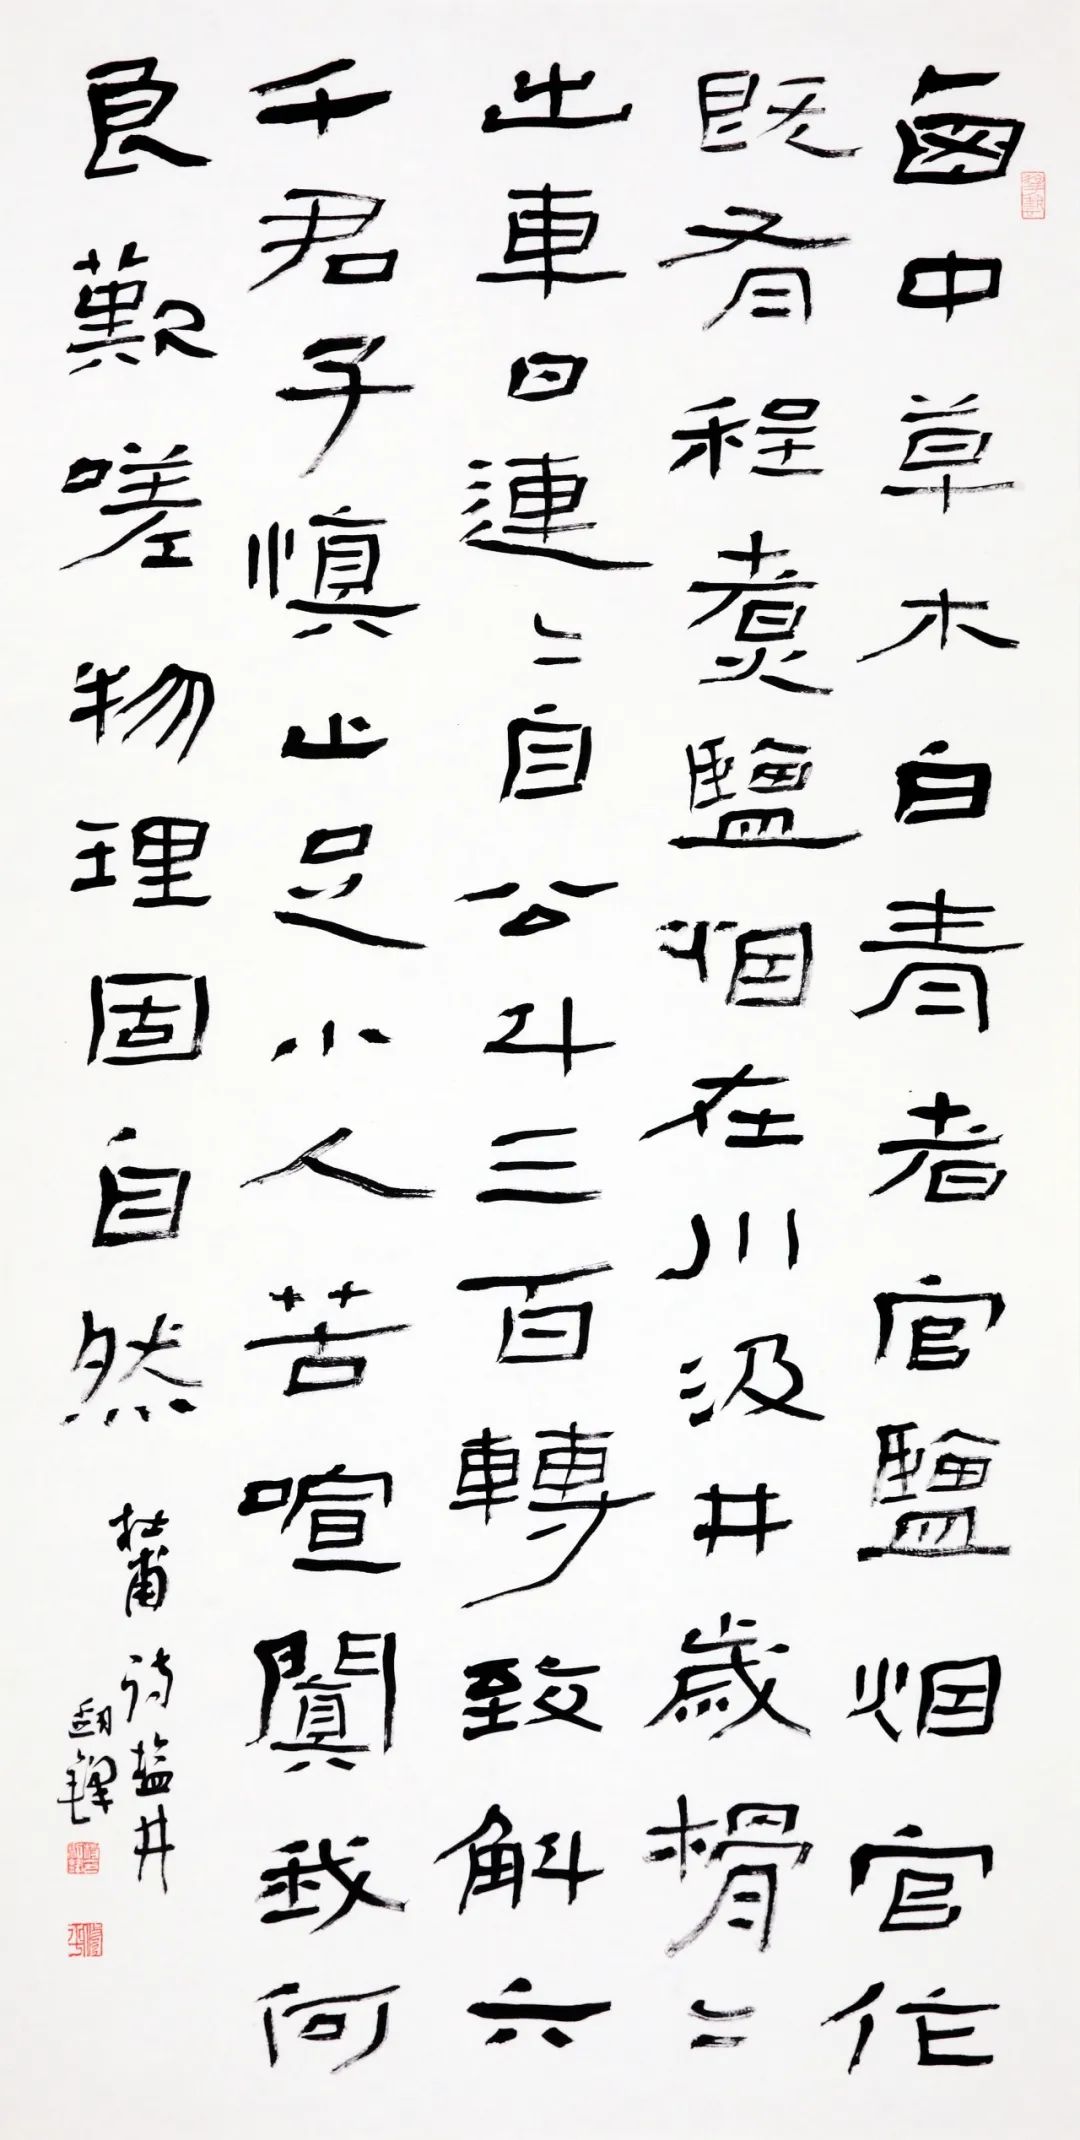 鹵中草木白青者官鹽烟官作
既有程煮鹽烟在川汲井歲榾〻
出車日連〻自公斗三百轉致斛六
千君子慎止足小人苦喧闐我何
良歎嗟物理固自然
杜甫诗盐井